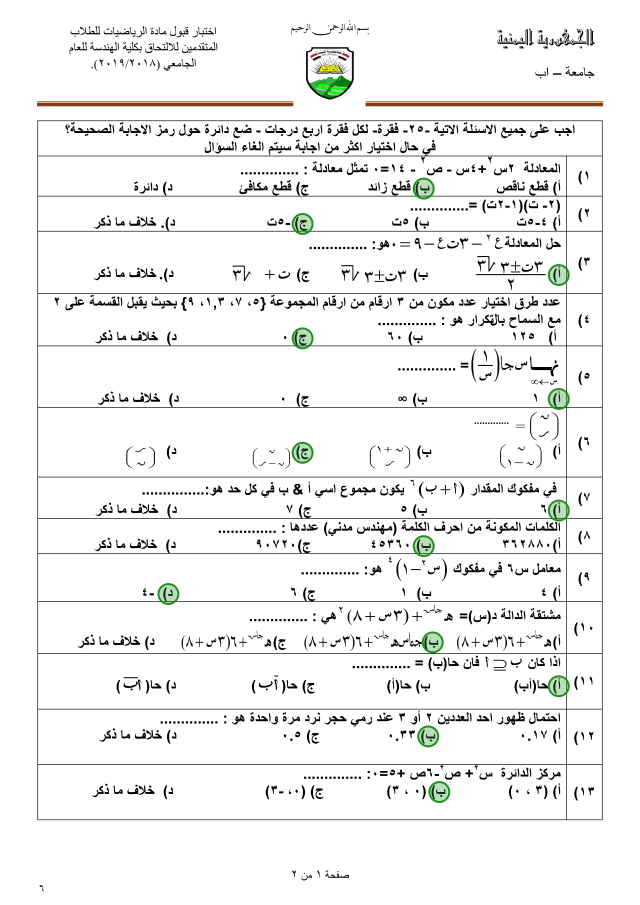 الجمهورية اليمنية
جامعة – اب
بسم الله الرحمن الرحيم
اختبار قبول مادة الرياضيات للطلاب
المتقدمين للالتحاق بكلية الهندسة للعام
الجامعي (٢٠١٩/٢٠١٨).
اجب على جميع الاسئلة الاتية -٢٥- فقرة- لكل فقرة اربع درجات - ضع دائرة حول رمز الاجابة الصحيحة؟
في حال اختيار اكثر من اجابة سيتم الغاء السؤال
١) المعادلة ٢س٢+٤س - ص٢ - ١٤=٠ تمثل معادلة : ..............
أ) قطع ناقص ب) قطع زائد ج) قطع مكافئ د) دائرة
٢) (٢- ت)(١-٢ت) =..............
أ) ٤-٥ت ب) ٥ت ج) -٥ت د). خلاف ما ذكر
٣) حل المعادلة ع٢ – ٣ت ع – ٩ = ٠ هو: ..............
أ) ٣ت±٣√٣ / ٢ ب) ٣ت±٣√٣ ج) ت + √٣ د). خلاف ما ذكر
٤) عدد طرق اختيار عدد مكون من ٣ ارقام من ارقام المجموعة {٥، ٧، ١,٣، ٩} بحيث يقبل القسمة على ٢
مع السماح بالتكرار هو : ..............
أ) ١٢٥ ب) ٦٠ ج) ٠ د) خلاف ما ذكر
٥) نهــا س←∞ س جا(١/س) = ..............
أ) ١ ب) ∞ ج) ٠ د) خلاف ما ذكر
٦) (ن ر) = .............
أ) (ن ١–ن) ب) (ن+١ ر) ج) (ن ن–ر) د) (ر ن)
٧) في مفكوك المقدار (أ + ب)٦ يكون مجموع اسي أ & ب في كل حد هو:...............
أ) ٦ ب) ٥ ج) ٧ د) خلاف ما ذكر
٨) الكلمات المكونة من احرف الكلمة (مهندس مدني) عددها : ..............
أ) ٣٦٢٨٨٠ ب) ٤٥٣٦٠ ج) ٩٠٧٢٠ د) خلاف ما ذكر
٩) معامل س٦ في مفكوك (س٢–١)٤ هو: ..............
أ) ٤ ب) ١ ج) ٦ د) -٤
١٠) مشتقة الدالة د(س)= هـ جاس + (٣س + ٨)٢ هي : ..............
أ) هـ جاس + ٦(٣س + ٨) ب) جتاس هـ جاس + ٦(٣س + ٨) ج) هـ جاس + ٦(٣س + ٨) د) خلاف ما ذكر
١١) اذا كان ب ⊇ أ فان حا(ب) = ..............
أ) حا(أب) ب) حا(أ) ج) حا(أب) د) حا(أب)
١٢) احتمال ظهور احد العددين ٢ أو ٣ عند رمي حجر نرد مرة واحدة هو : ..............
أ) ٠.١٧ ب) ٠.٣٣ ج) ٠.٥ د) خلاف ما ذكر
١٣) مركز الدائرة س٢+ ص٢-٦ص +٥=٠: ..............
أ) (٣ ، ٠) ب) (٠ ، ٣) ج) (٠، -٣) د) خلاف ما ذكر
صفحة ١ من ٢
٦